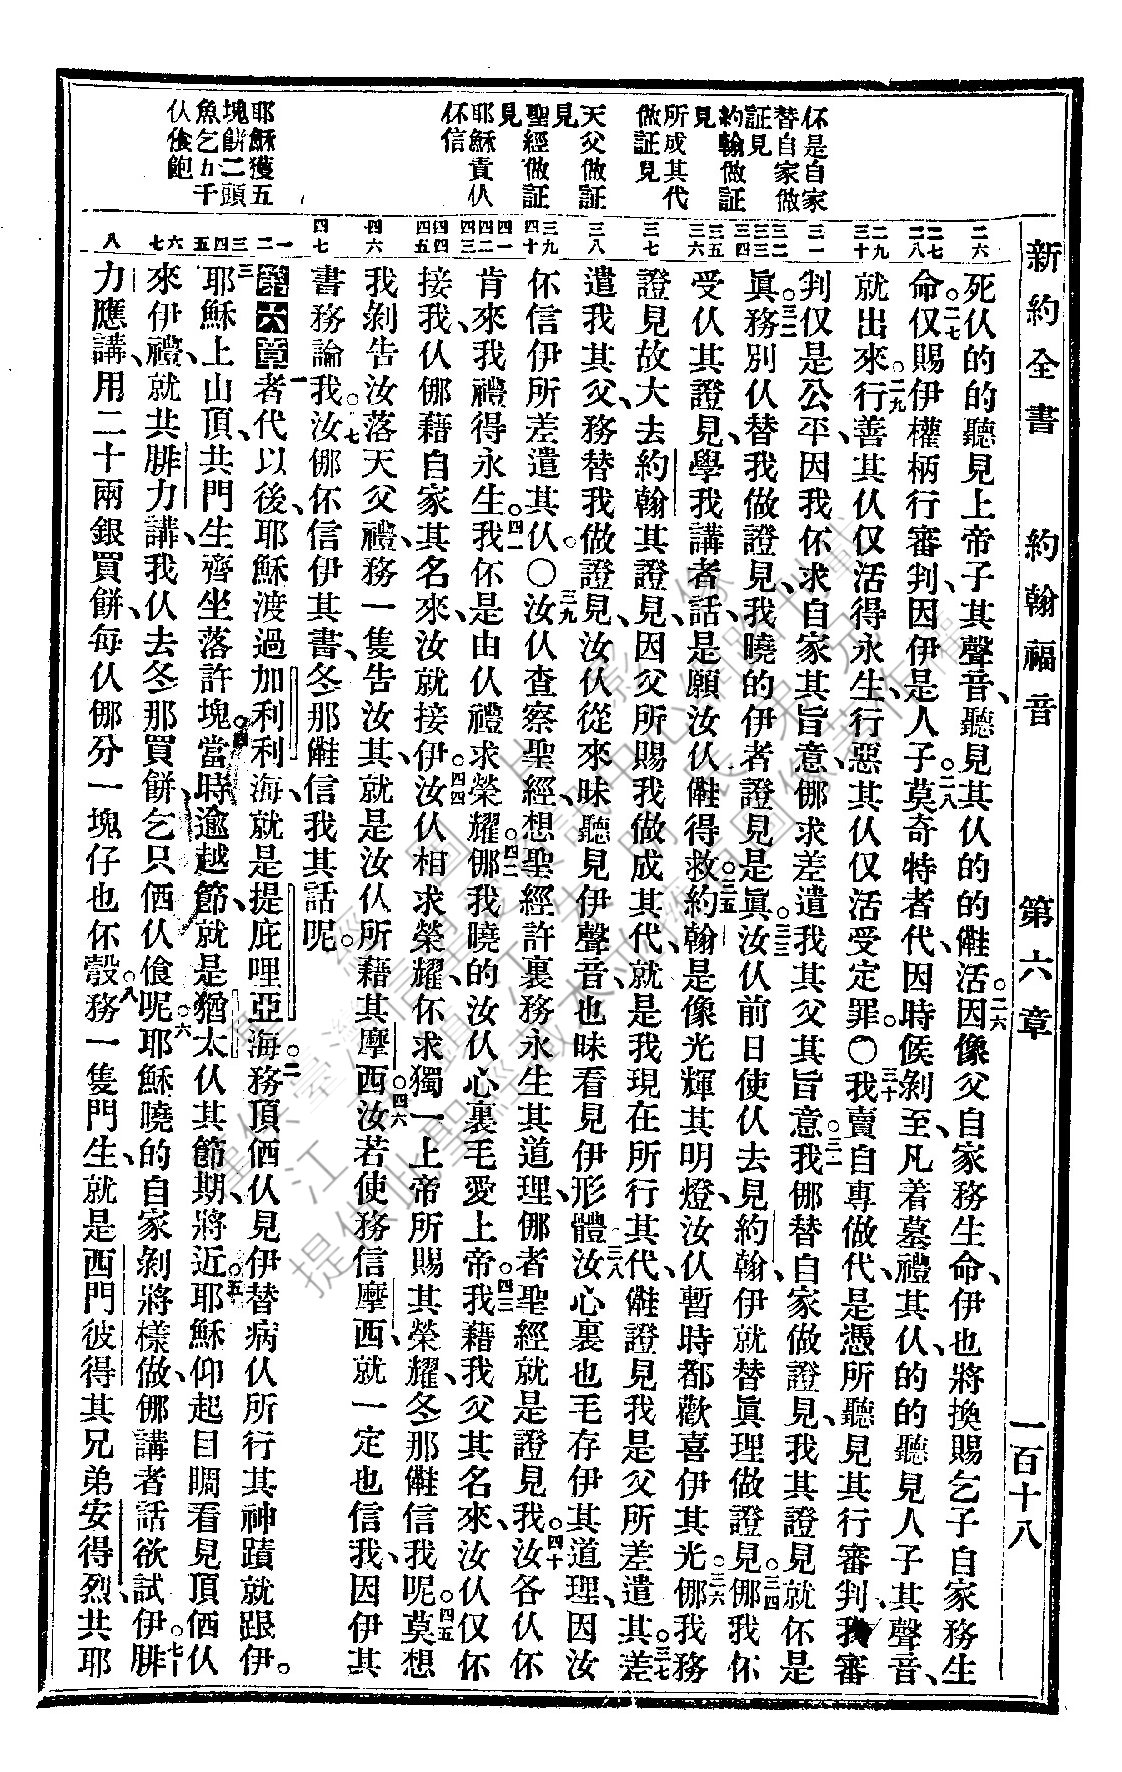 新約全書 約翰福音 第六章 一百十八
伓是自家
替自家做
証見
約翰做証
見
所成其代
做証見
天父做証
見
聖經做証
見
耶穌責仈
伓信
耶穌獲五
塊餅二頭
魚乞五千
仈飡飽
二六
二七
二八
二九
三十
三一
三二
三三
三四
三五
三六
三七
三八
三九
四十
四一
四二
四三
四四
四五
四六
四七
一
二
三
四
五
六
七
八
死仈的的聽見上帝子其聲音、聽見其仈的的儺活。二六因像父自家務生命、伊也將換賜乞子自家務生
命。二七仅賜伊權柄行審判、因伊是人子。二八莫奇特者代、因時候剝至、凡着墓禮其仈的的聽見人子其聲音、
就出來。二九行善其仈仅活得永生、行惡其仈仅活受定罪。〇三十我賣自專做代、是憑所聽見其行審判、我審
判仅是公平、因我伓求自家其旨意、㑚求差遣我其父其旨意。三一我㑚替自家做證見、我其證見就伓是
眞。三二務別仈替我做證見、我曉的伊者證見是眞。三三汝仈前日使仈去見約翰、伊就替眞理做證見。三四㑚我伓
受仈其證見、學我講者話、是願汝仈儺得救。三五約翰是像光輝其明燈、汝仈暫時都歡喜伊其光。三六㑚我務
證見故大去約翰其證見、因父所賜我做成其代、就是我現在所行其代、儺證見我是父所差遣其。三七差
遣我其父、務替我做證見、汝仈從來昧聽見伊聲音、也昧看見伊形體。三八汝心裏也毛存伊其道理、因汝
伓信伊所差遣其仈。〇三九汝仈查察聖經、想聖經許裏務永生其道理、㑚者聖經就是證見我。四十汝各仈伓
肯來我禮得永生。四一我伓是由仈禮求榮耀。四二㑚我曉的汝仈心裏毛愛上帝。四三我藉我父其名來、汝仈仅伓
接我、仈㑚藉自家其名來、汝就接伊。四四汝仈相求榮耀、伓求獨一上帝所賜其榮耀、冬那儺信我呢。四五莫想
我剝告汝落天父禮、務一隻告汝其、就是汝仈所藉其摩西。四六汝若使務信摩西、就一定也信我、因伊其
書務論我。四七汝㑚伓信伊其書、冬那儺信我其話呢。
第六章 一者代以後、耶穌渡過加利利海、就是提庇哩亞海。二務頂㑚仈見伊替病仈所行其神蹟、就跟伊。
三耶穌上山頂、共門生齊坐落許塊。四當時逾越節、就是猶太仈其節期將近。五耶穌仰起目睭、看見頂㑚仈
來伊禮、就共腓力講、我仈去冬那買餅、乞只㑚仈飡呢。六耶穌曉的自家剝將樣做、㑚講者話欲試伊。七腓
力應講、用二十兩銀買餅、每仈㑚分一塊仔也伓彀。八務一隻門生、就是西門彼得其兄弟安得烈、共耶